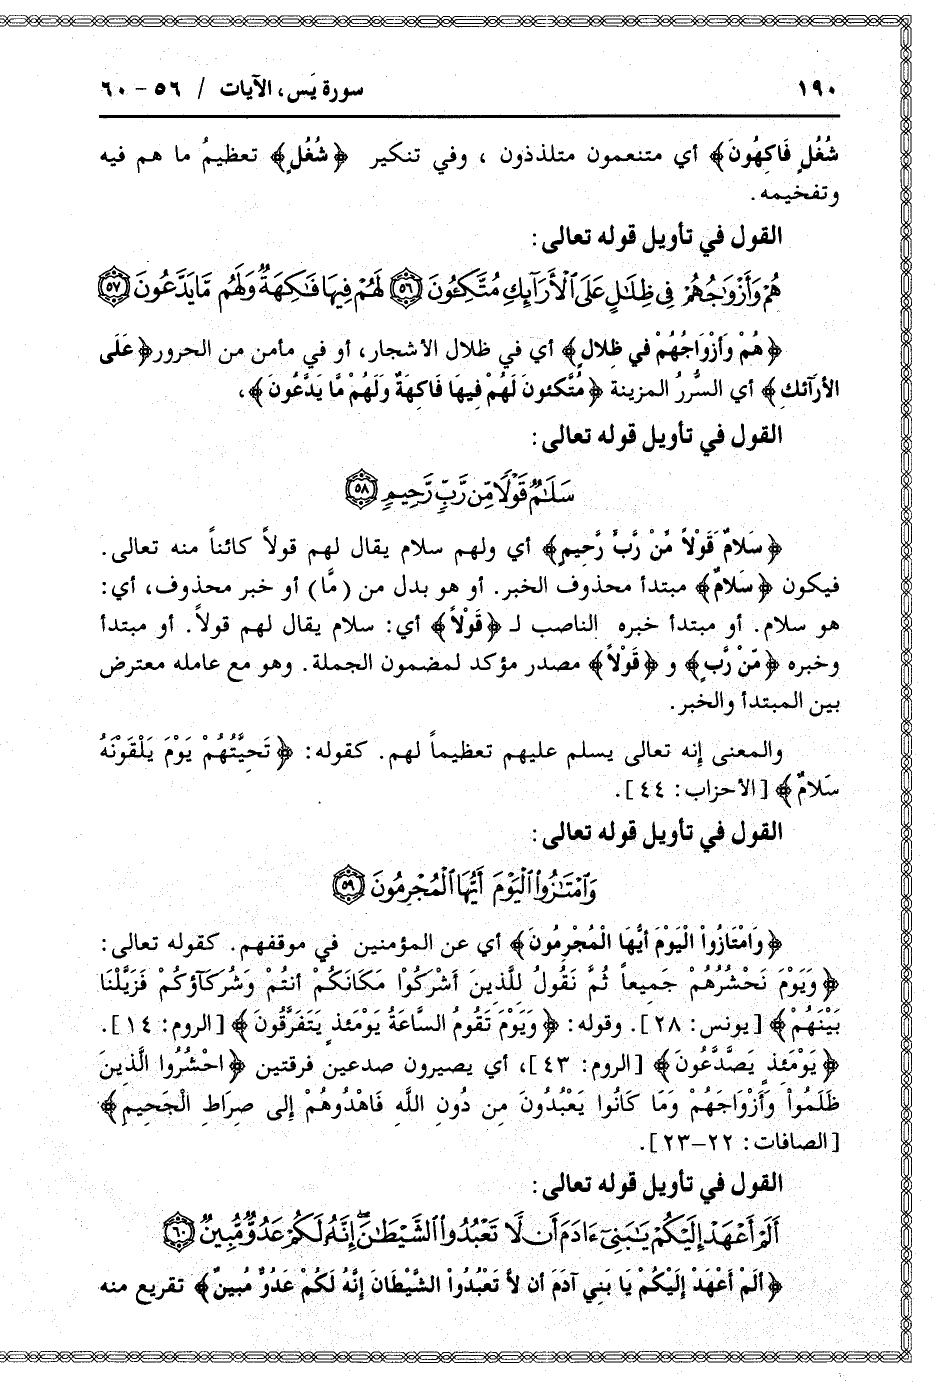 ١٩٠ سورة يَس، الآيات / ٥٦ - ٦٠
شُغُلٍ فَاكِهُونَ﴾ أي متنعمون متلذذون ، وفي تنكير ﴿شُغُلٍ﴾ تعظيمُ ما هم فيه
وتفخيمه.
القول في تأويل قوله تعالى:
هُمْ وَأَزْوَٰجُهُمْ فِى ظِلَٰلٍ عَلَى ٱلْأَرَآئِكِ مُتَّكِـُٔونَ ٥٦ لَهُمْ فِيهَا فَٰكِهَةٌ وَلَهُم مَّا يَدَّعُونَ ٥٧
﴿هُمْ وَأَزْوَاجُهُمْ في ظِلالٍ﴾ أي في ظلال الأشجار، أو في مأمن من الحرور﴿عَلَى
الأرَآئكِ﴾ أي السُّررُ المزينة ﴿مُتَّكئونَ لَهُمْ فِيهَا فَاكِهَةٌ وَلَهُمْ مَّا يَدَّعُونَ﴾،
القول في تأويل قوله تعالى:
سَلَٰمٌ قَوْلًا مِّن رَّبٍّ رَّحِيمٍ ٥٨
﴿سَلامٌ قَوْلاً مِّنْ رَّبٍّ رَّحِيمٍ﴾ أي ولهم سلام يقال لهم قولاً كائناً منه تعالى.
فيكون ﴿سَلامٌ﴾ مبتدأ محذوف الخبر. أو هو بدل من (مَّا) أو خبر محذوف، أي:
هو سلام. أو مبتدأ خبره الناصب لـ ﴿قَوْلاً﴾ أي: سلام يقال لهم قولاً. أو مبتدأ
وخبره ﴿مِّنْ رَّبٍ﴾ و ﴿قَوْلاً﴾ مصدر مؤكد لمضمون الجملة. وهو مع عامله معترض
بين المبتدأ والخبر.
والمعنى إنه تعالى يسلم عليهم تعظيماً لهم. كقوله: ﴿تَحِيَّتُهُمْ يَوْمَ يَلْقَوْنَهُ
سَلامٌ﴾ [الأحزاب: ٤٤].
القول في تأويل قوله تعالى:
وَٱمْتَٰزُوا۟ ٱلْيَوْمَ أَيُّهَا ٱلْمُجْرِمُونَ ٥٩
﴿وَامْتَازُواْ الْيَوْمَ أيُّهَا الْمُجْرِمُونَ﴾ أي عن المؤمنين في موقفهم. كقوله تعالى:
﴿وَيَوْمَ نَحْشُرُهُمْ جَمِيعاً ثُمَّ نَقُولُ لِلَّذِينَ أَشْرَكُواْ مَكَانَكُمْ أَنتُمْ وَشُرَكَآؤُكُمْ فَزَيَّلْنَا
بَيْنَهُمْ﴾ [يونس: ٢٨]. وقوله: ﴿وَيَوْمَ تَقُومُ السَّاعَةُ يَوْمَئذٍ يَتَفَرَّقُونَ﴾ [الروم: ١٤].
﴿يَوْمَئذٍ يَصَّدَّعُونَ﴾ [الروم: ٤٣]، أي يصيرون صدعين فرقتين ﴿احْشُرُوا الَّذِينَ
ظَلَمُواْ وَأَزْوَاجَهُمْ وَمَا كَانُوا يَعْبُدُونَ مِن دُونِ اللَّهِ فَاهْدُوهُمْ إلى صِرَاطِ الْجَحِيمِ﴾
[الصافات: ٢٢-٢٣].
القول في تأويل قوله تعالى:
أَلَمْ أَعْهَدْ إِلَيْكُمْ يَٰبَنِىٓ ءَادَمَ أَن لَّا تَعْبُدُوا۟ ٱلشَّيْطَٰنَ إِنَّهُۥ لَكُمْ عَدُوٌّ مُّبِينٌ ٦٠
﴿ألَمْ أعْهَدْ إلَيْكُمْ يَا بَنِي آدَمَ أن لاَّ تَعْبُدُواْ الشَّيْطَانَ إنَّهُ لَكُمْ عَدُوٌ مُبينٌ﴾ تقريع منه